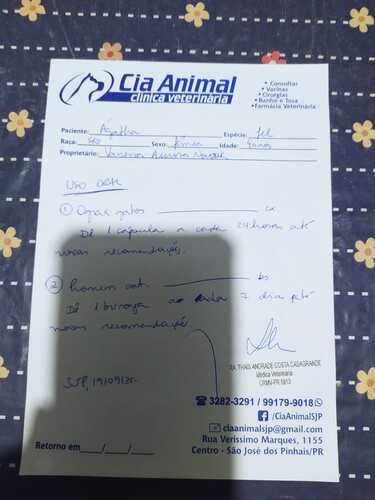 Cia Animal
clínica veterinária
• Consultas
• Vacinas
• Cirurgias
• Banho e Tosa
• Farmácia Veterinária
Paciente: Agatha Espécie: fel
Raça: SRD Sexo: fêmea Idade: 4 anos
Proprietário: Vanessa
USO ORAL
① gatos cx
Dê 1 cápsula a cada 24 horas até
novas recomendações.
②
Dê 1 a cada 7 dias até
novas recomendações.
DRA. THAIS ANDRADE COSTA CASAGRANDE
Médica Veterinária
CRMV-PR
3282-3291 / 99179-9018
/CiaAnimalSJP
ciaanimalsjp@gmail.com
Rua Veríssimo Marques, 1155
Centro - São José dos Pinhais/PR
Retorno em ___/___/___